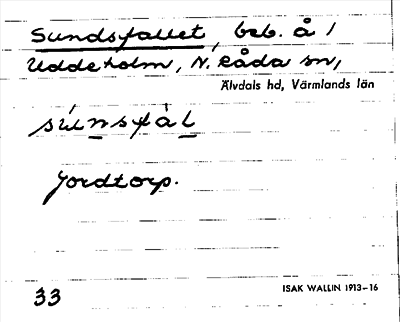 Sundsfallet, beb. å 1
Uddeholm, N. Råda sn,
Älvdals hd, Värmlands län
Jordtorp.
33
ISAK WALLIN 1913–16